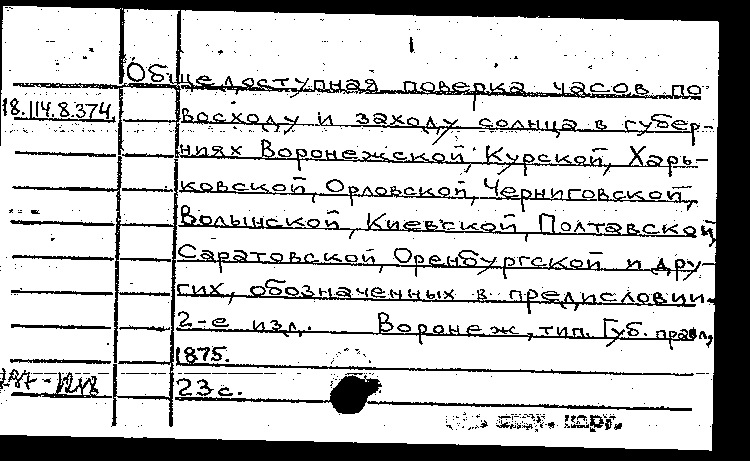 Общедоступная поверка часов по
18.114.8.374.
восходу и заходу солнца в губер-
ниях Воронежской, Курской, Харь-
ковской, Орловской, Черниговской,
Волынской, Киевской, Полтавской,
Саратовской, Оренбургской и дру-
гих, обозначенных в предисловии.
2-е изд. Воронеж, тип. Губ. правл.,
1875.
23 с.